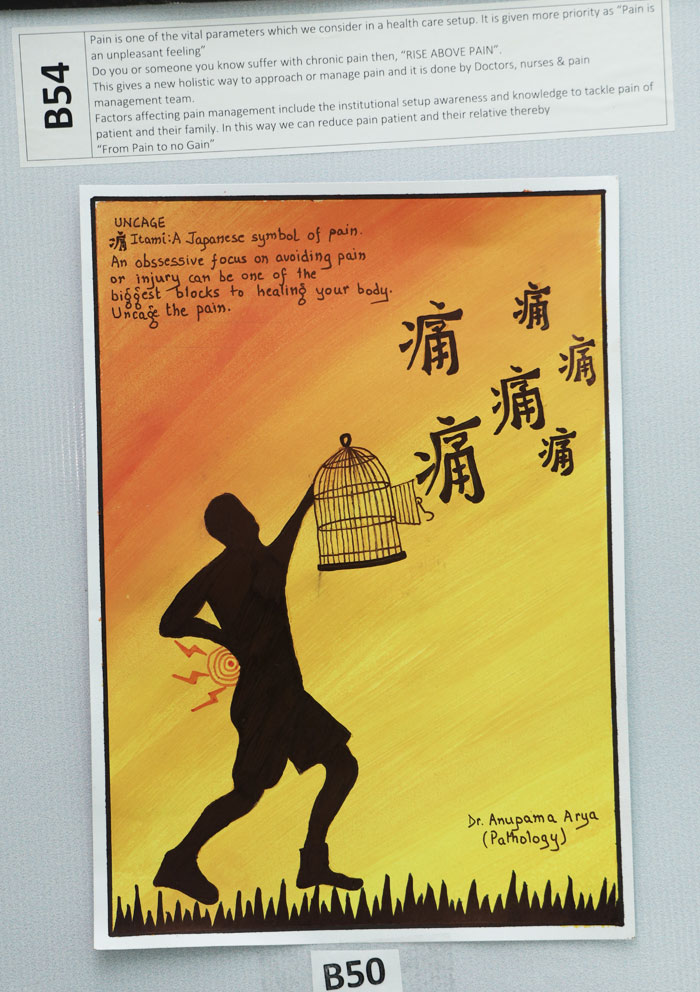 B54
Pain is one of the vital parameters which we consider in a health care setup. It is given more priority as "Pain is
an unpleasant feeling"
Do you or someone you know suffer with chronic pain then, "RISE ABOVE PAIN".
This gives a new holistic way to approach or manage pain and it is done by Doctors, nurses & pain
management team.
Factors affecting pain management include the institutional setup awareness and knowledge to tackle pain of
patient and their family. In this way we can reduce pain patient and their relative thereby
"From Pain to no Gain"
UNCAGE
痛 Itami: A Japanese symbol of pain.
An obssessive focus on avoiding pain
or injury can be one of the
biggest blocks to healing your body.
Uncage the pain.
痛
痛
痛
痛
痛
痛
Dr. Anupama Arya
(Pathology)
B50